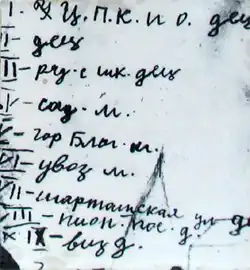 I. Ц. П. К. и О. дец
II - дец
III - руч. с шк. дец
V - сад. м.
V - гор Благ. м.
VI - увоз м.
VII - шарташская
VIII - пион. пос. д. ул д
IX - виз д.